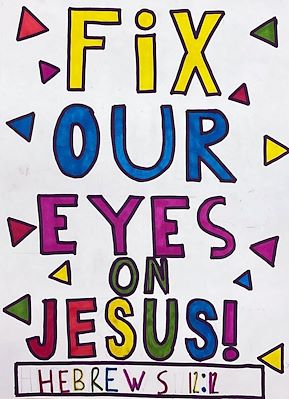 FiX
OUR
EYES
ON
JESUS!
HEBREWS 12:12